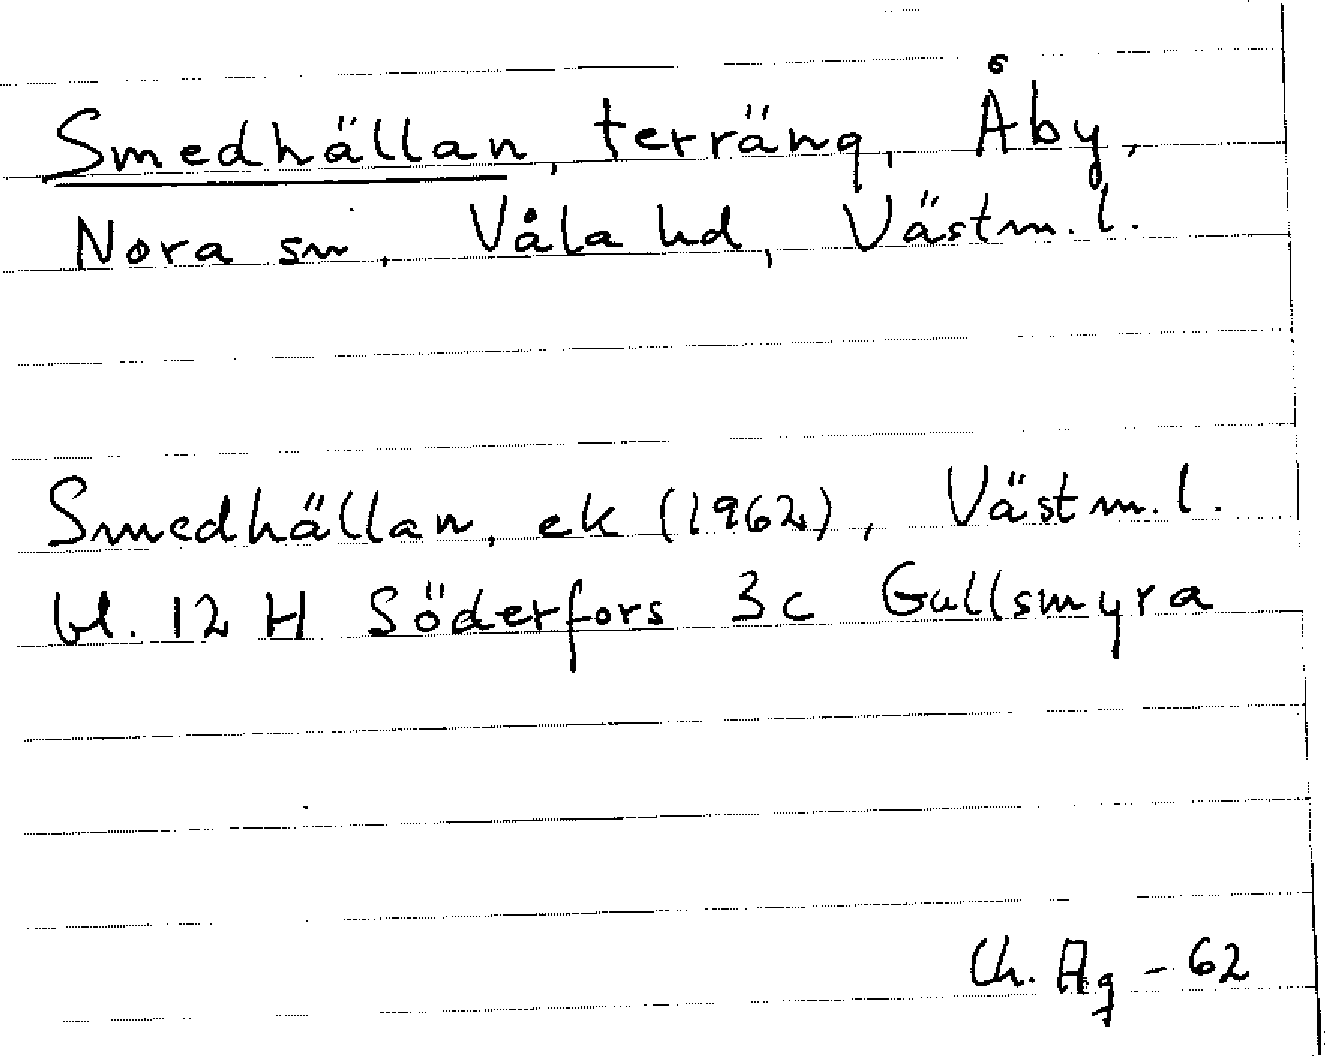 Smedhällan, terräng, Åby,
Nora sn, Våla hd, Västm. l.
Smedhällan, ek (1962), Västm. l.
bl. 12 H Söderfors 3c Gullsmyra
Ch. Ag - 62